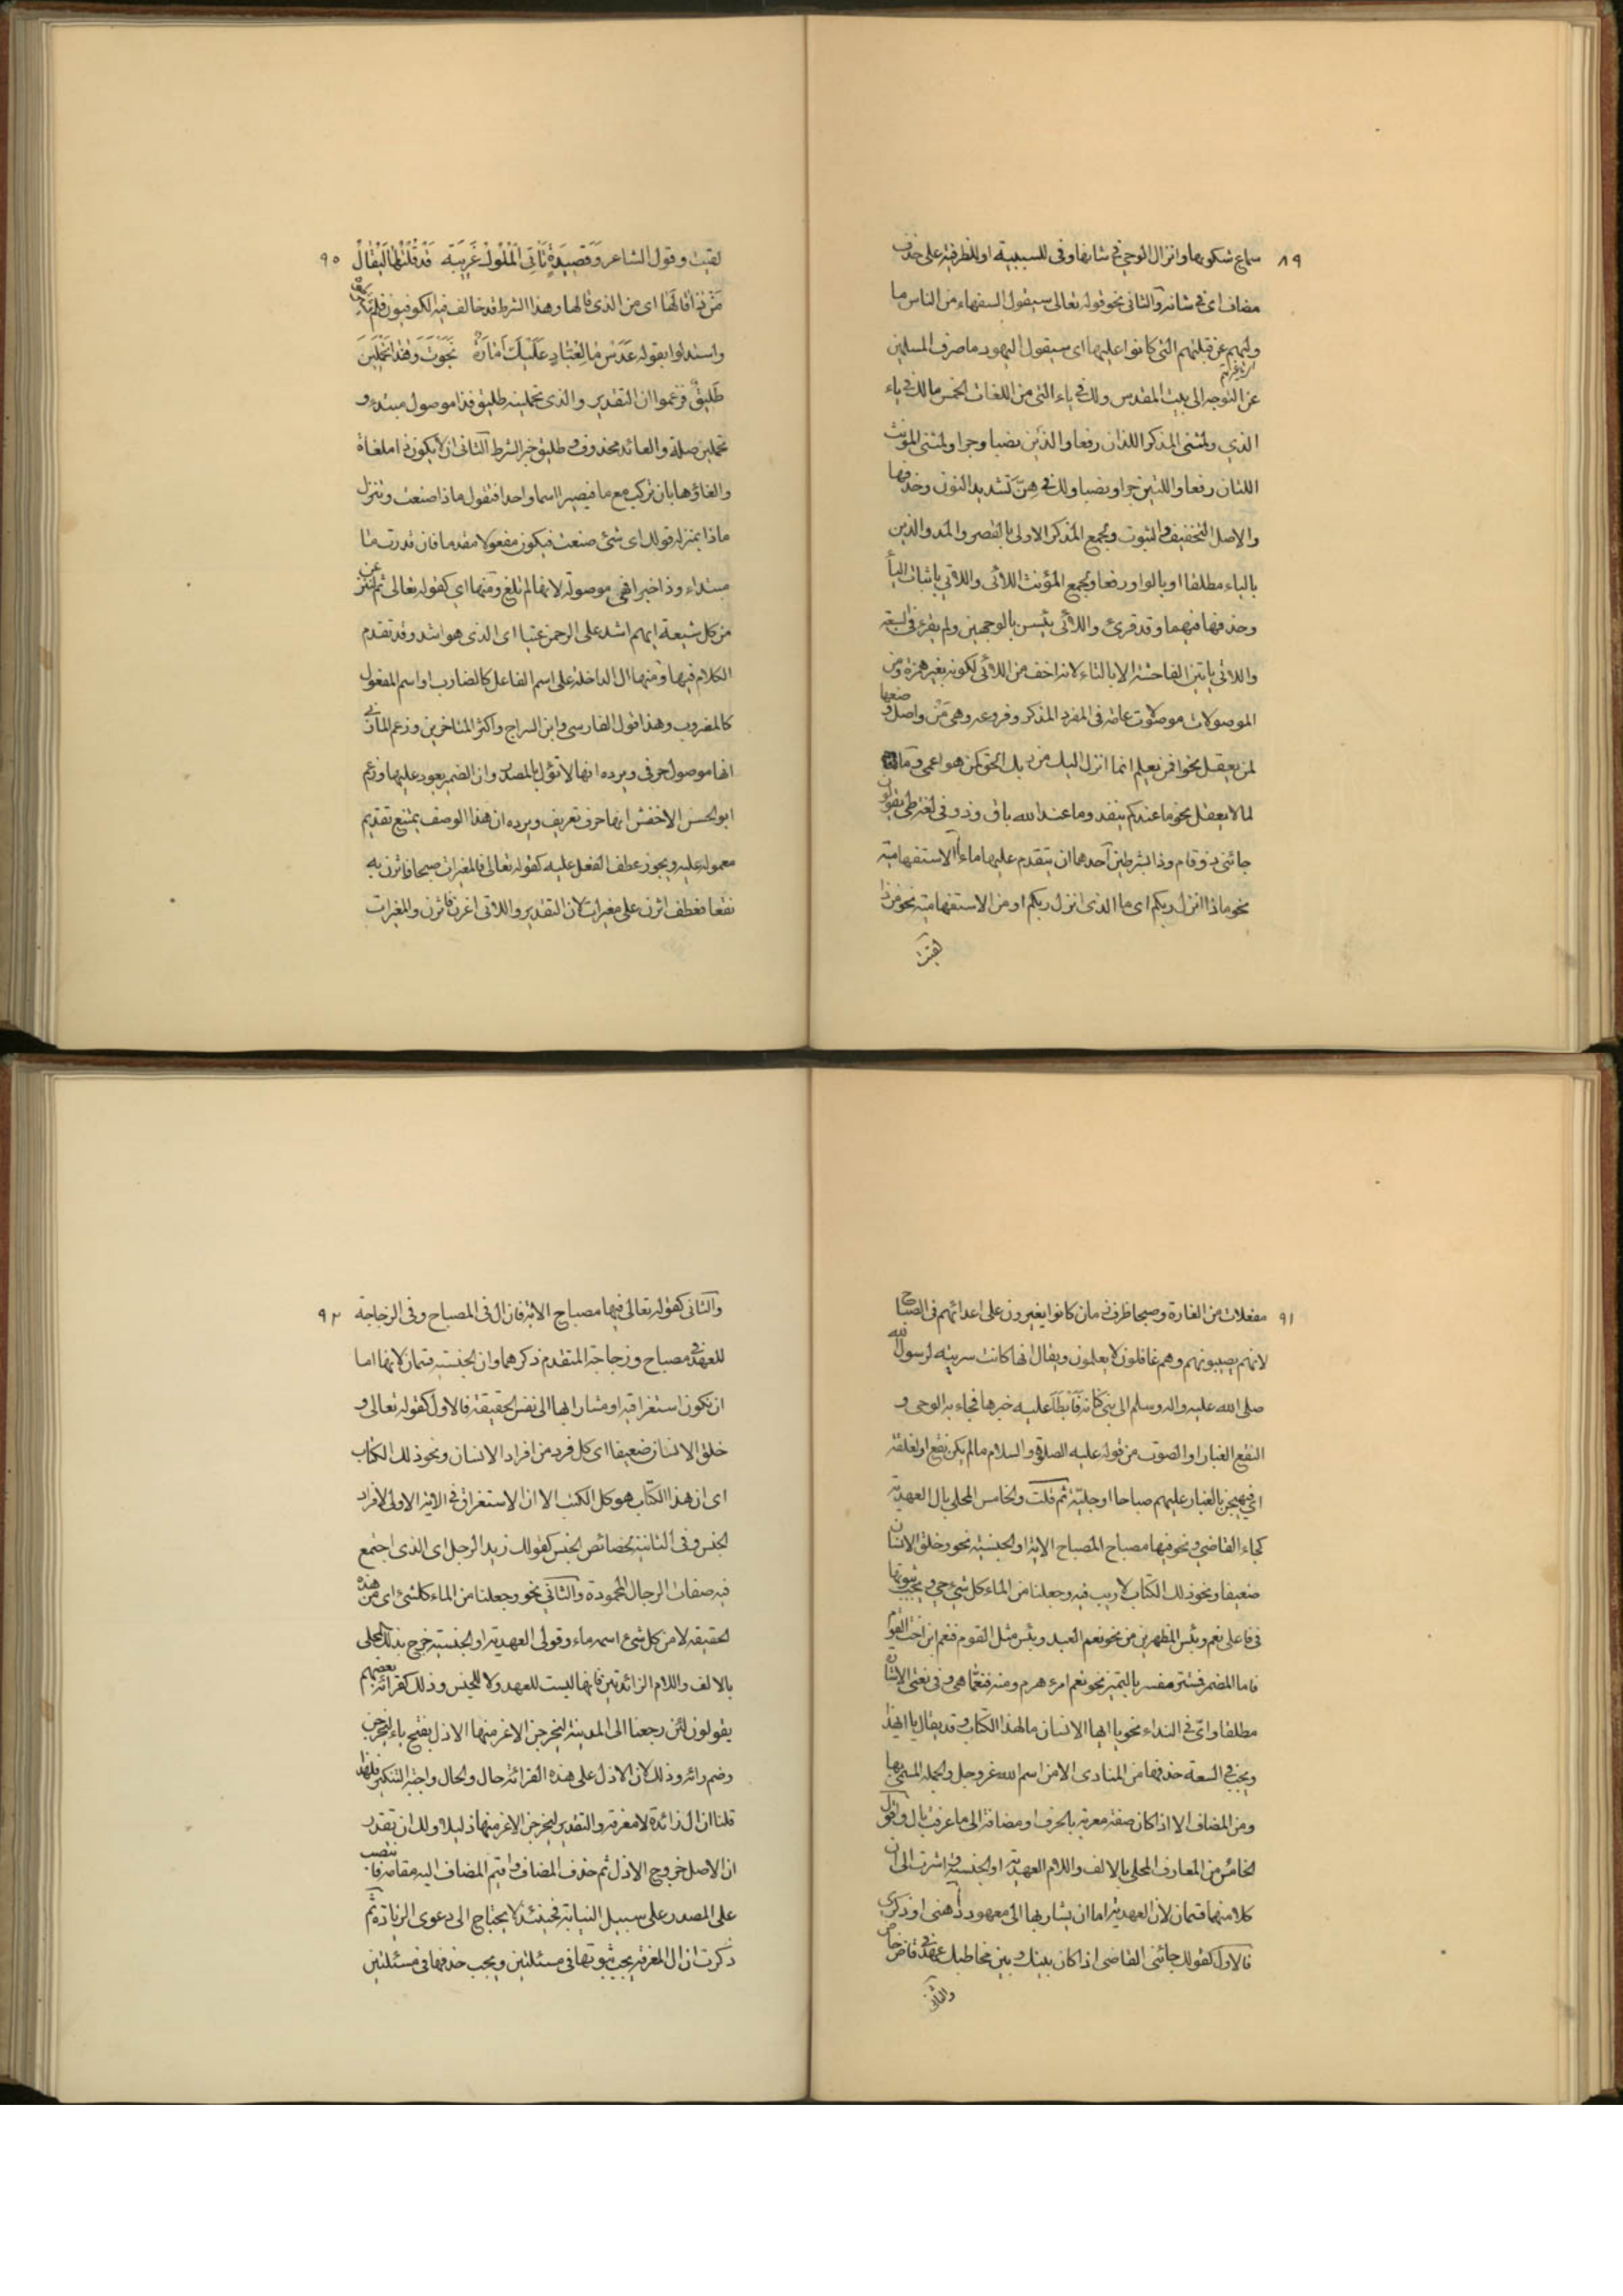 ٨٩
سماع شكويها وانزال الوحي في شانها وفي للسببية او للظرفية على حذف
مضاف اى في شانه والثانى نحو قوله تعالى سيقول السفهاء من الناس ما
وليهم عن قبلتهم التى كانوا عليها اى سيقول اليهود ما صرف المسلمين
عن التوجه الى بيت المقدس ولك في ياء التى من اللغات الخمس مالك في ياء
الذي ولمثنى المذكر اللذان رفعا والذين نصبا وجرا ولمثنى المؤنث
اللتان رفعا واللتين جرا ونصبا ولك فيهن تشديد النون وحذفها
والاصل التخفيف والثبوت ولجمع المذكر الاولى بالقصر والمد والذين
بالياء مطلقا او بالواو رفعا ولجمع المؤنث اللائى واللاتى باثبات الياء
وحذفها فيهما وقد قرئ واللائى يئسن بالوجهين ولم يقرء فى السبعة
واللاتى ياتين الفاحشة الا بالتاء لانه اخف من اللائى لكونه بغير همزة ومن
الموصولات موصولات عامة فى المفرد المذكر وفروعه وهى من واصل وضعها
لمن يعقل نحو افمن يعلم انما انزل اليك من ربك الحق كمن هو اعمى وما
لما لا يعقل نحو ما عندكم ينفد وما عند الله باق وذو فى لغة طى يقولون
جائنى ذو قام وذا بشرطين احدهما ان يتقدم عليها ما الاستفهامية
نحو ماذا انزل ربكم اى ما الذى انزل ربكم او من الاستفهامية نحو من ذا
لقيت
٩٠
لقيت وقول الشاعر وَقَصِيدَةٍ تَأْتِى الْمُلُوكَ غَرِيبَةٍ قَدْ قُلْتُهَا لِيُقَالَ
مَنْ ذَا قَالَهَا اى من الذى قالها وهذا الشرط قد خالف فيه الكوفيون فلم
واستدلوا بقوله عَدَسْ مَا لِعَبَّادٍ عَلَيْكِ اَمَارَةٌ نَجَوْتِ وَهٰذَا تَحْمِلِينَ
طَلِيقٌ فزعموا ان التقدير والذى تحملينه طليق فذا موصول مبتدء و
تحملين صلة والعائد محذوف وطليق خبر الشرط الثانى ان لا يكون ذا ملغاة
والغاؤها بان تركب مع ما فيصير اسما واحدا فتقول ماذا صنعت وتنزل
ماذا بمنزلة قولك اى شئ صنعت فيكون مفعولا مقدما فان قدرت ما
مبتداء وذا خبرا فهى موصولة لانها لم تلغ ومنها اى كقوله تعالى ثم لننزعن
من كل شيعة ايهم اشد على الرحمن عتيا اى الذى هو اشد وقد تقدم
الكلام فيها ومنها ال الداخلة على اسم الفاعل كالضارب او اسم المفعول
كالمضروب وهذا قول الفارسى وابن السراج واكثر المتاخرين وزعم المازنى
انها موصول حرفى ويرده انها لا تؤل بالمصدر وان الضمير يعود عليها وزعم
ابو الحسن الاخفش انها حرف تعريف ويرده ان هذا الوصف يمتنع تقديم
معموله عليه ويجوز عطف الفعل عليه كقوله تعالى فالمغيرات صبحا فاثرن به
نقعا فعطف اثرن على مغيرات لان التقدير واللاتى اغرن فاثرن والمغيرات
٩١
مفعلات من الغارة وصبحا ظرف زمان كانوا يغيرون على اعدائهم فى الصباح
لانهم يصيبونهم وهم غافلون لا يعلمون ويقال انها كانت سرية لرسول الله
صلى الله عليه واله وسلم الى بنى كنانة فابطأ عليه خبرها فجاء به الوحى و
النقع الغبار او الصوت من قوله عليه الصلوة والسلام ما لم يكن نقع او لقلقة
اي فهيجن بالغبار عليهم صباحا او جلبة ثم قلت والخامس المحلى بال العهدية
كجاء القاضي ونحو فيها مصباح المصباح الاية او الجنسية نحو وخلق الانسان
ضعيفا ونحو ذلك الكتاب لا ريب فيه وجعلنا من الماء كل شئ حي ويجب ثبوتها
فى فاعلى نعم وبئس المظهرين من نحو نعم العبد وبئس مثل القوم فنعم ابن اخت القوم
فاما المضمر فمستتر مفسر بالتميز نحو نعم امرء هرم ومنه فنعما هى وفى نعتى الاشارة
مطلقا واى فى النداء نحو يا ايها الانسان مال هذا الكتاب وقد يقال يا ايهذا
ويجب فى السعة حذفها من المنادى الا من اسم الله عز وجل والجملة المسمى بها
ومن المضاف الا اذا كان صفة معربة بالحرف او مضافة الى ما عرف بال واقول
الخامس من المعارف المحلى بالالف واللام العهدية او الجنسية واشرت الى ان
كلا منهما قسمان لان العهدية اما ان يشار بها الى معهود ذهنى او ذكرى
فالاول كقولك جائنى القاضى اذا كان بينك وبين مخاطبك عهد فى قاض خاص
والثانى
٩٢
والثانى كقوله تعالى فيها مصباح الاية فان ال فى المصباح وفى الزجاجة
للعهد فى مصباح وزجاجة المتقدم ذكرهما وان الجنسية قسمان لانها اما
ان تكون استغراقية او مشارا بها الى نفس الحقيقة فالاول كقوله تعالى و
خلق الانسان ضعيفا اى كل فرد من افراد الانسان ونحو ذلك الكتاب
اى ان هذا الكتاب هو كل الكتب الا ان الاستغراق فى الاية الاولى لافراد
الجنس وفى الثانية لخصائص الجنس كقولك زيد الرجل اى الذى اجتمع
فيه صفات الرجال المحمودة والثانى نحو وجعلنا من الماء كل شئ اى من هذه
الحقيقة لا من كل شئ اسمه ماء وقولى العهدية او الجنسية خرج بذلك المحلى
بالالف واللام الزائدتين فانها ليست للعهد ولا للجنس وذلك كقرائة بعضهم
يقولون لئن رجعنا الى المدينة ليخرجن الاعز منها الاذل بفتح ياء ليخرجن
وضم رائه وذلك لان الاذل على هذه القرائة حال والحال واجبة التنكير فلهذا
قلنا ان ال زائدة لا معرفة والتقدير ليخرجن الاعز منها ذليلا ولك ان تقدر
ان الاصل خروج الاذل ثم حذف المضاف واقيم المضاف اليه مقامه فانتصب
على المصدر على سبيل النيابة فحينئذ لا يحتاج الى دعوى الزيادة ثم
ذكرت ان ال المعرفة يجب ثبوتها فى مسئلتين ويجب حذفها فى مسئلتين